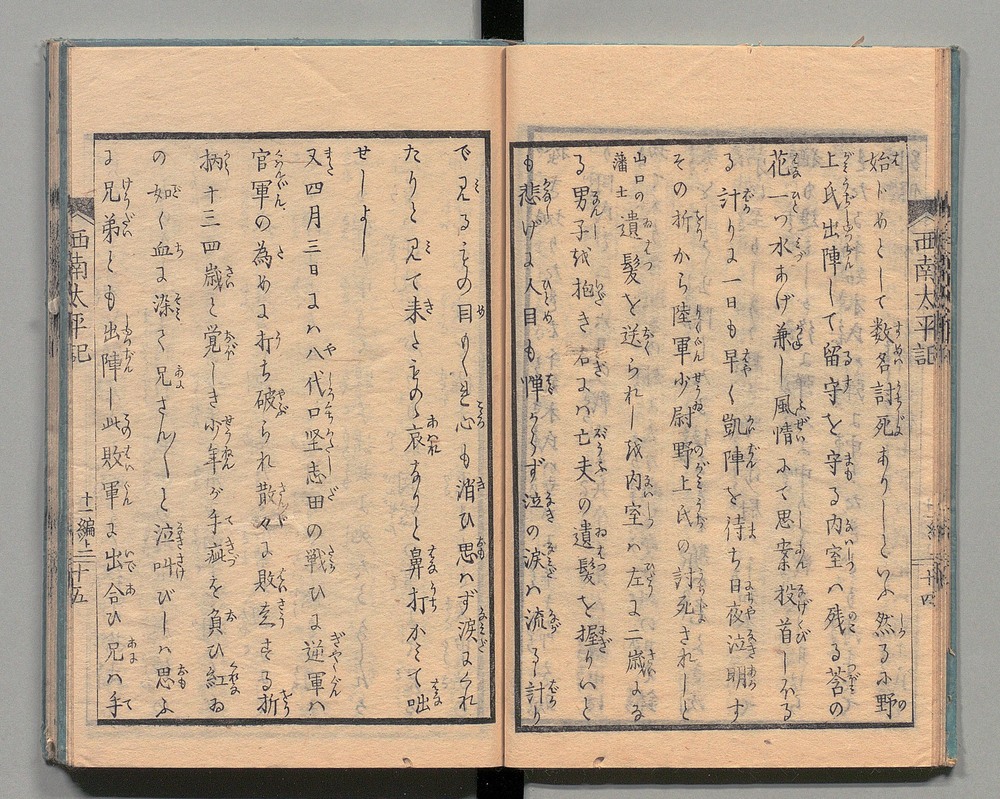 始じめとして数名討死ありしといふ然るに野
上氏出陣して留守を守る内室ハ残る莟の
花一つ水あげ兼し風情にて思案投首し居る
る計りに一日も早く凱陣を待ち日夜泣明す
その折から陸軍少尉野上氏の討死されしと
山口の藩士遺髪を送られしを内室ハ左に二歳になる
る男子を抱き右にハ亡夫の遺髪を握りいと
も悲げに人目も憚からず泣の涙ハ流るゝ計り
で見るものゝ目もくれ心も消ひ思ハず涙にくれ
たりと見て来たものゝ哀ありと鼻打かみて咄
せしよし
又四月三日にハ八代口坚志田の戦ひに逆軍ハ
官軍の為めに打ち破られ散々に敗走する折
柄十三四歳と覚しき少年が手疵を負ひ紅ゐ
の如く血に染て兄さん〳〵と泣叫びしハ思ふ
に兄弟とも出陣し此敗軍に出合ひ兄ハ手
西南太平記
十一編上
二十五
西南太平記
十一編
二十四